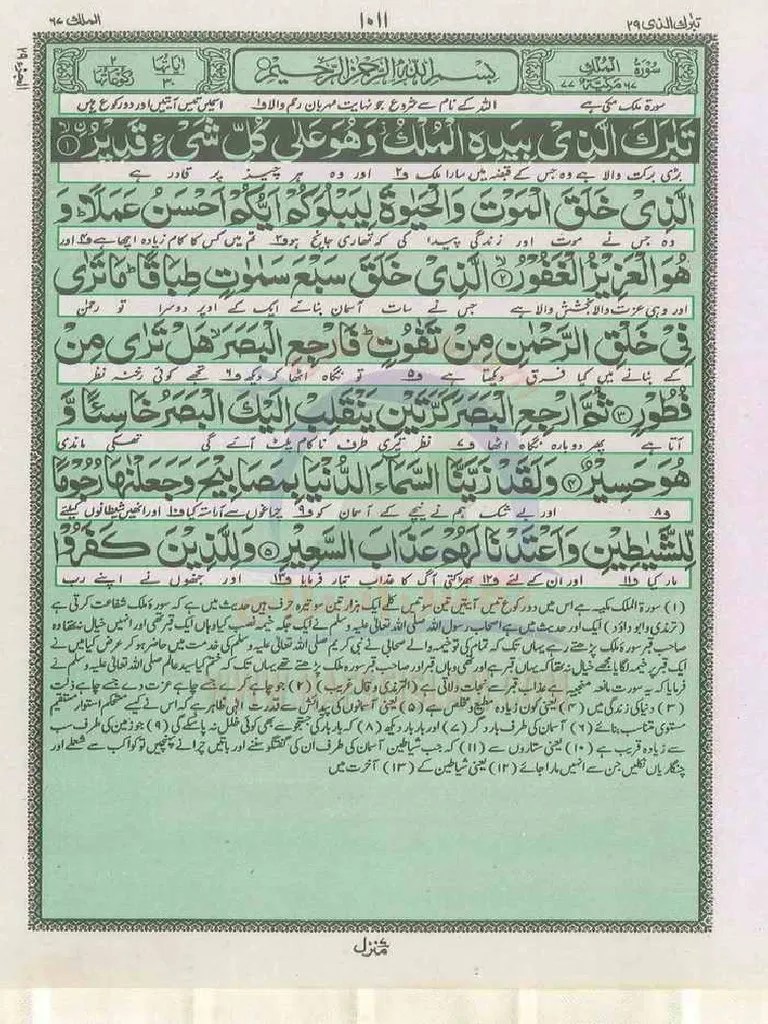 تبٰرك الذی ٢٩
١٠١١
الملك ٦٧
سُوۡرَةُ الۡمُلۡكِ مَكِّيَّةٌ ٦٧ ٧٧
بِسۡمِ اللّٰهِ الرَّحۡمٰنِ الرَّحِيۡمِ
اٰيَاتُهَا ٣٠ رُكُوۡعَاتُهَا ٢
سورۃ ملک مکی ہے اللہ کے نام سے شروع جو نہایت مہربان رحم والا ف۱ اسمیں تیس آیتیں اور دو رکوع ہیں
تَبٰرَكَ الَّذِىۡ بِيَدِهِ الۡمُلۡكُ وَهُوَ عَلٰى كُلِّ شَىۡءٍ قَدِيۡرُ ۙ﴿١﴾
بڑی برکت والا ہے وہ جس کے قبضہ میں سارا ملک ف۲ اور وہ ہر چیز پر قادر ہے
الَّذِىۡ خَلَقَ الۡمَوۡتَ وَالۡحَيٰوةَ لِيَبۡلُوَكُمۡ اَيُّكُمۡ اَحۡسَنُ عَمَلًا ؕ وَ
وہ جس نے موت اور زندگی پیدا کی کہ تمھاری جانچ ہو ف۳ تم میں کس کا کام زیادہ اچھا ہے ف۴ اور
هُوَ الۡعَزِيۡزُ الۡغَفُوۡرُ ۙ﴿٢﴾ الَّذِىۡ خَلَقَ سَبۡعَ سَمٰوٰتٍ طِبَاقًا ؕ مَا تَرٰى
اور وہی عزت والا بخشش والا ہے جس نے سات آسمان بنائے ایک کے اوپر دوسرا تو رحمٰن
فِىۡ خَلۡقِ الرَّحۡمٰنِ مِنۡ تَفٰوُتٍ ؕ فَارۡجِعِ الۡبَصَرَ ۙ هَلۡ تَرٰى مِنۡ
کے بنانے میں کیا فرق دیکھتا ہے ف۵ تو نگاہ اٹھا کر دیکھ ف۶ تجھے کوئی رخنہ نظر
فُطُوۡرٍ ﴿٣﴾ ثُمَّ ارۡجِعِ الۡبَصَرَ كَرَّتَيۡنِ يَنۡقَلِبۡ اِلَيۡكَ الۡبَصَرُ خَاسِئًا وَّ
آتا ہے پھر دوبارہ نگاہ اٹھا ف۷ نظر تیری طرف ناکام پلٹ آئے گی تھکی ماندی
هُوَ حَسِيۡرٌ ﴿٤﴾ وَلَقَدۡ زَيَّنَّا السَّمَآءَ الدُّنۡيَا بِمَصَابِيۡحَ وَجَعَلۡنٰهَا رُجُوۡمًا
ف۸ اور بے شک ہم نے نیچے کے آسمان کو ف۹ چراغوں سے آراستہ کیا ف۱۰ اور انھیں شیطانوں کیلئے
لِّلشَّيٰطِيۡنِ وَاَعۡتَدۡنَا لَهُمۡ عَذَابَ السَّعِيۡرِ ﴿٥﴾ وَلِلَّذِيۡنَ كَفَرُوۡا
مار کیا ف۱۱ اور ان کے لئے ف۱۲ بھڑکتی آگ کا عذاب تیار فرمایا ف۱۳ اور جنھوں نے اپنے رب
(۱) سورۃ الملک مکیہ ہے اس میں دو رکوع تیس آیتیں تین سو تیس کلمے ایک ہزار تین سو تیرہ حرف ہیں حدیث میں ہے کہ سورۂ ملک شفاعت کرتی ہے
(ترمذی و ابوداؤد) ایک اور حدیث میں ہے اصحاب رسول اللہ صلی اللہ تعالٰی علیہ وسلم نے ایک جگہ خیمہ نصب کیا وہاں ایک قبر تھی اور انہیں خیال نہ تھا وہ
صاحب قبر سورۂ ملک پڑھتے رہے یہاں تک کہ تمام کی تو خیمہ والے صحابی نے نبی کریم صلی اللہ تعالٰی علیہ وسلم کی خدمت میں حاضر ہو کر عرض کیا میں نے
ایک قبر پر خیمہ لگایا مجھے خیال نہ تھا کہ یہاں قبر ہے اور تھی وہاں قبر اور صاحب قبر سورہ ملک پڑھتے تھے یہاں تک کہ ختم کیا سید عالم صلی اللہ تعالٰی علیہ وسلم نے
فرمایا کہ یہ سورت مانعہ منجیہ ہے عذاب قبر سے نجات دلاتی ہے (الترمذی و قال غریب) (۲) جو چاہے کرے جسے چاہے عزت دے جسے چاہے ذلت
(۳) دنیا کی زندگی میں (۴) یعنی کون زیادہ مطیع و مخلص ہے (۵) یعنی آسمانوں کی پیدائش سے قدرت الٰہی ظاہر ہے کہ اس نے کیسے مستحکم استوار مستقیم
مستوی متناسب بنائے (۶) آسمان کی طرف بار دگر (۷) اور بار بار دیکھ (۸) کہ بار بار کی جستجو سے بھی کوئی خلل نہ پا سکے گی (۹) جو زمین کی طرف سب
سے زیادہ قریب ہے (۱۰) یعنی ستاروں سے (۱۱) کہ جب شیاطین آسمان کی طرف ان کی گفتگو سننے اور باتیں چرانے پہنچیں تو کواکب سے شعلے اور
چنگاریاں نکلیں جن سے انہیں مارا جائے (۱۲) یعنی شیاطین کے (۱۳) آخرت میں
منزل